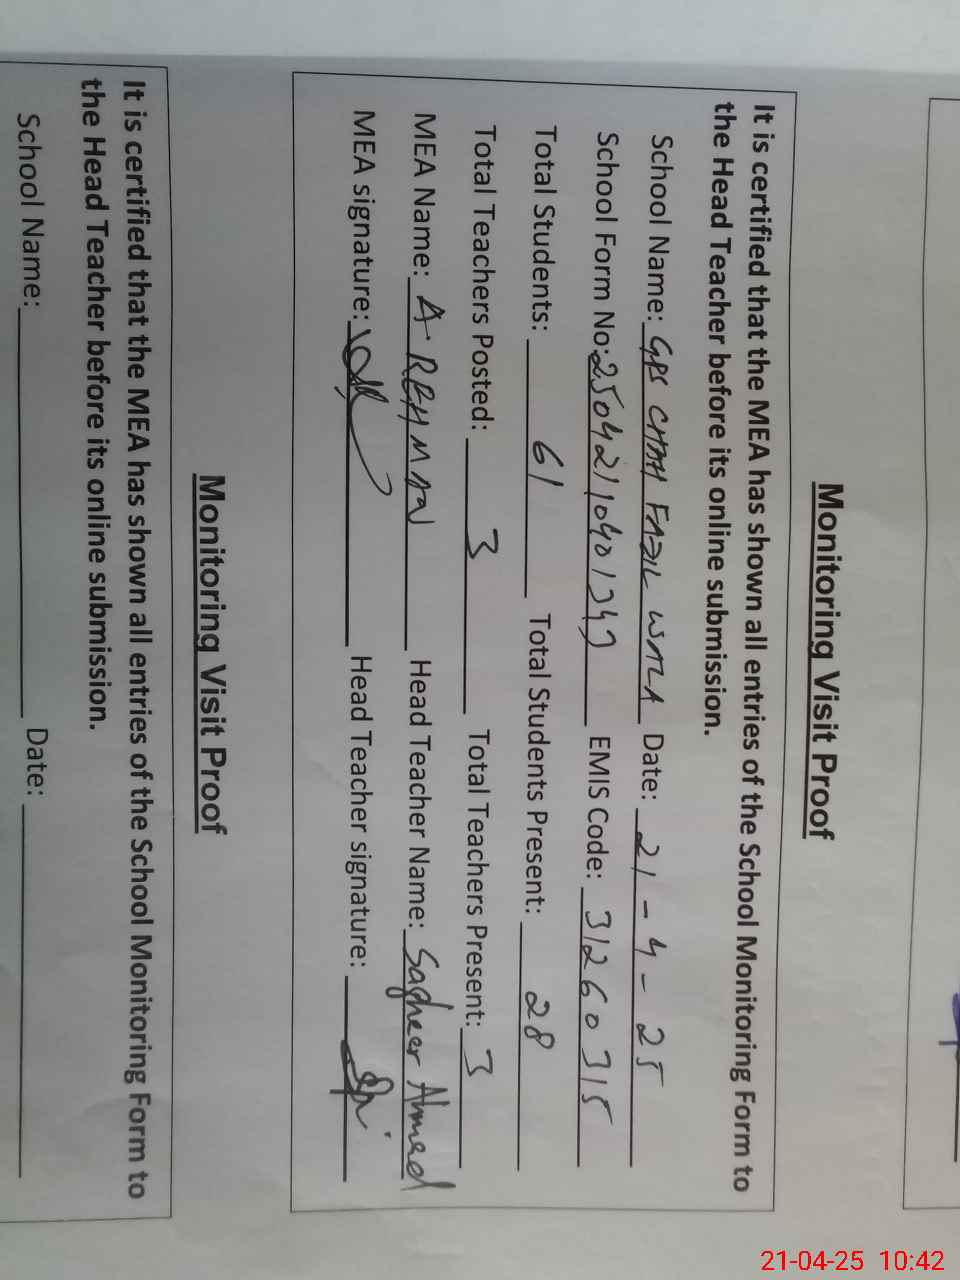 Monitoring Visit Proof
It is certified that the MEA has shown all entries of the School Monitoring Form to
the Head Teacher before its online submission.
School Name: GPS CHAH FAZIL WALA Date: 21-4-25
School Form No: 25042110401349 EMIS Code: 31260315
Total Students: 61 Total Students Present: 28
Total Teachers Posted: 3 Total Teachers Present: 3
MEA Name: A REHMAN Head Teacher Name: Sagheer Ahmed
MEA signature: Head Teacher signature:
Monitoring Visit Proof
It is certified that the MEA has shown all entries of the School Monitoring Form to
the Head Teacher before its online submission.
School Name: Date:
21-04-25 10:42